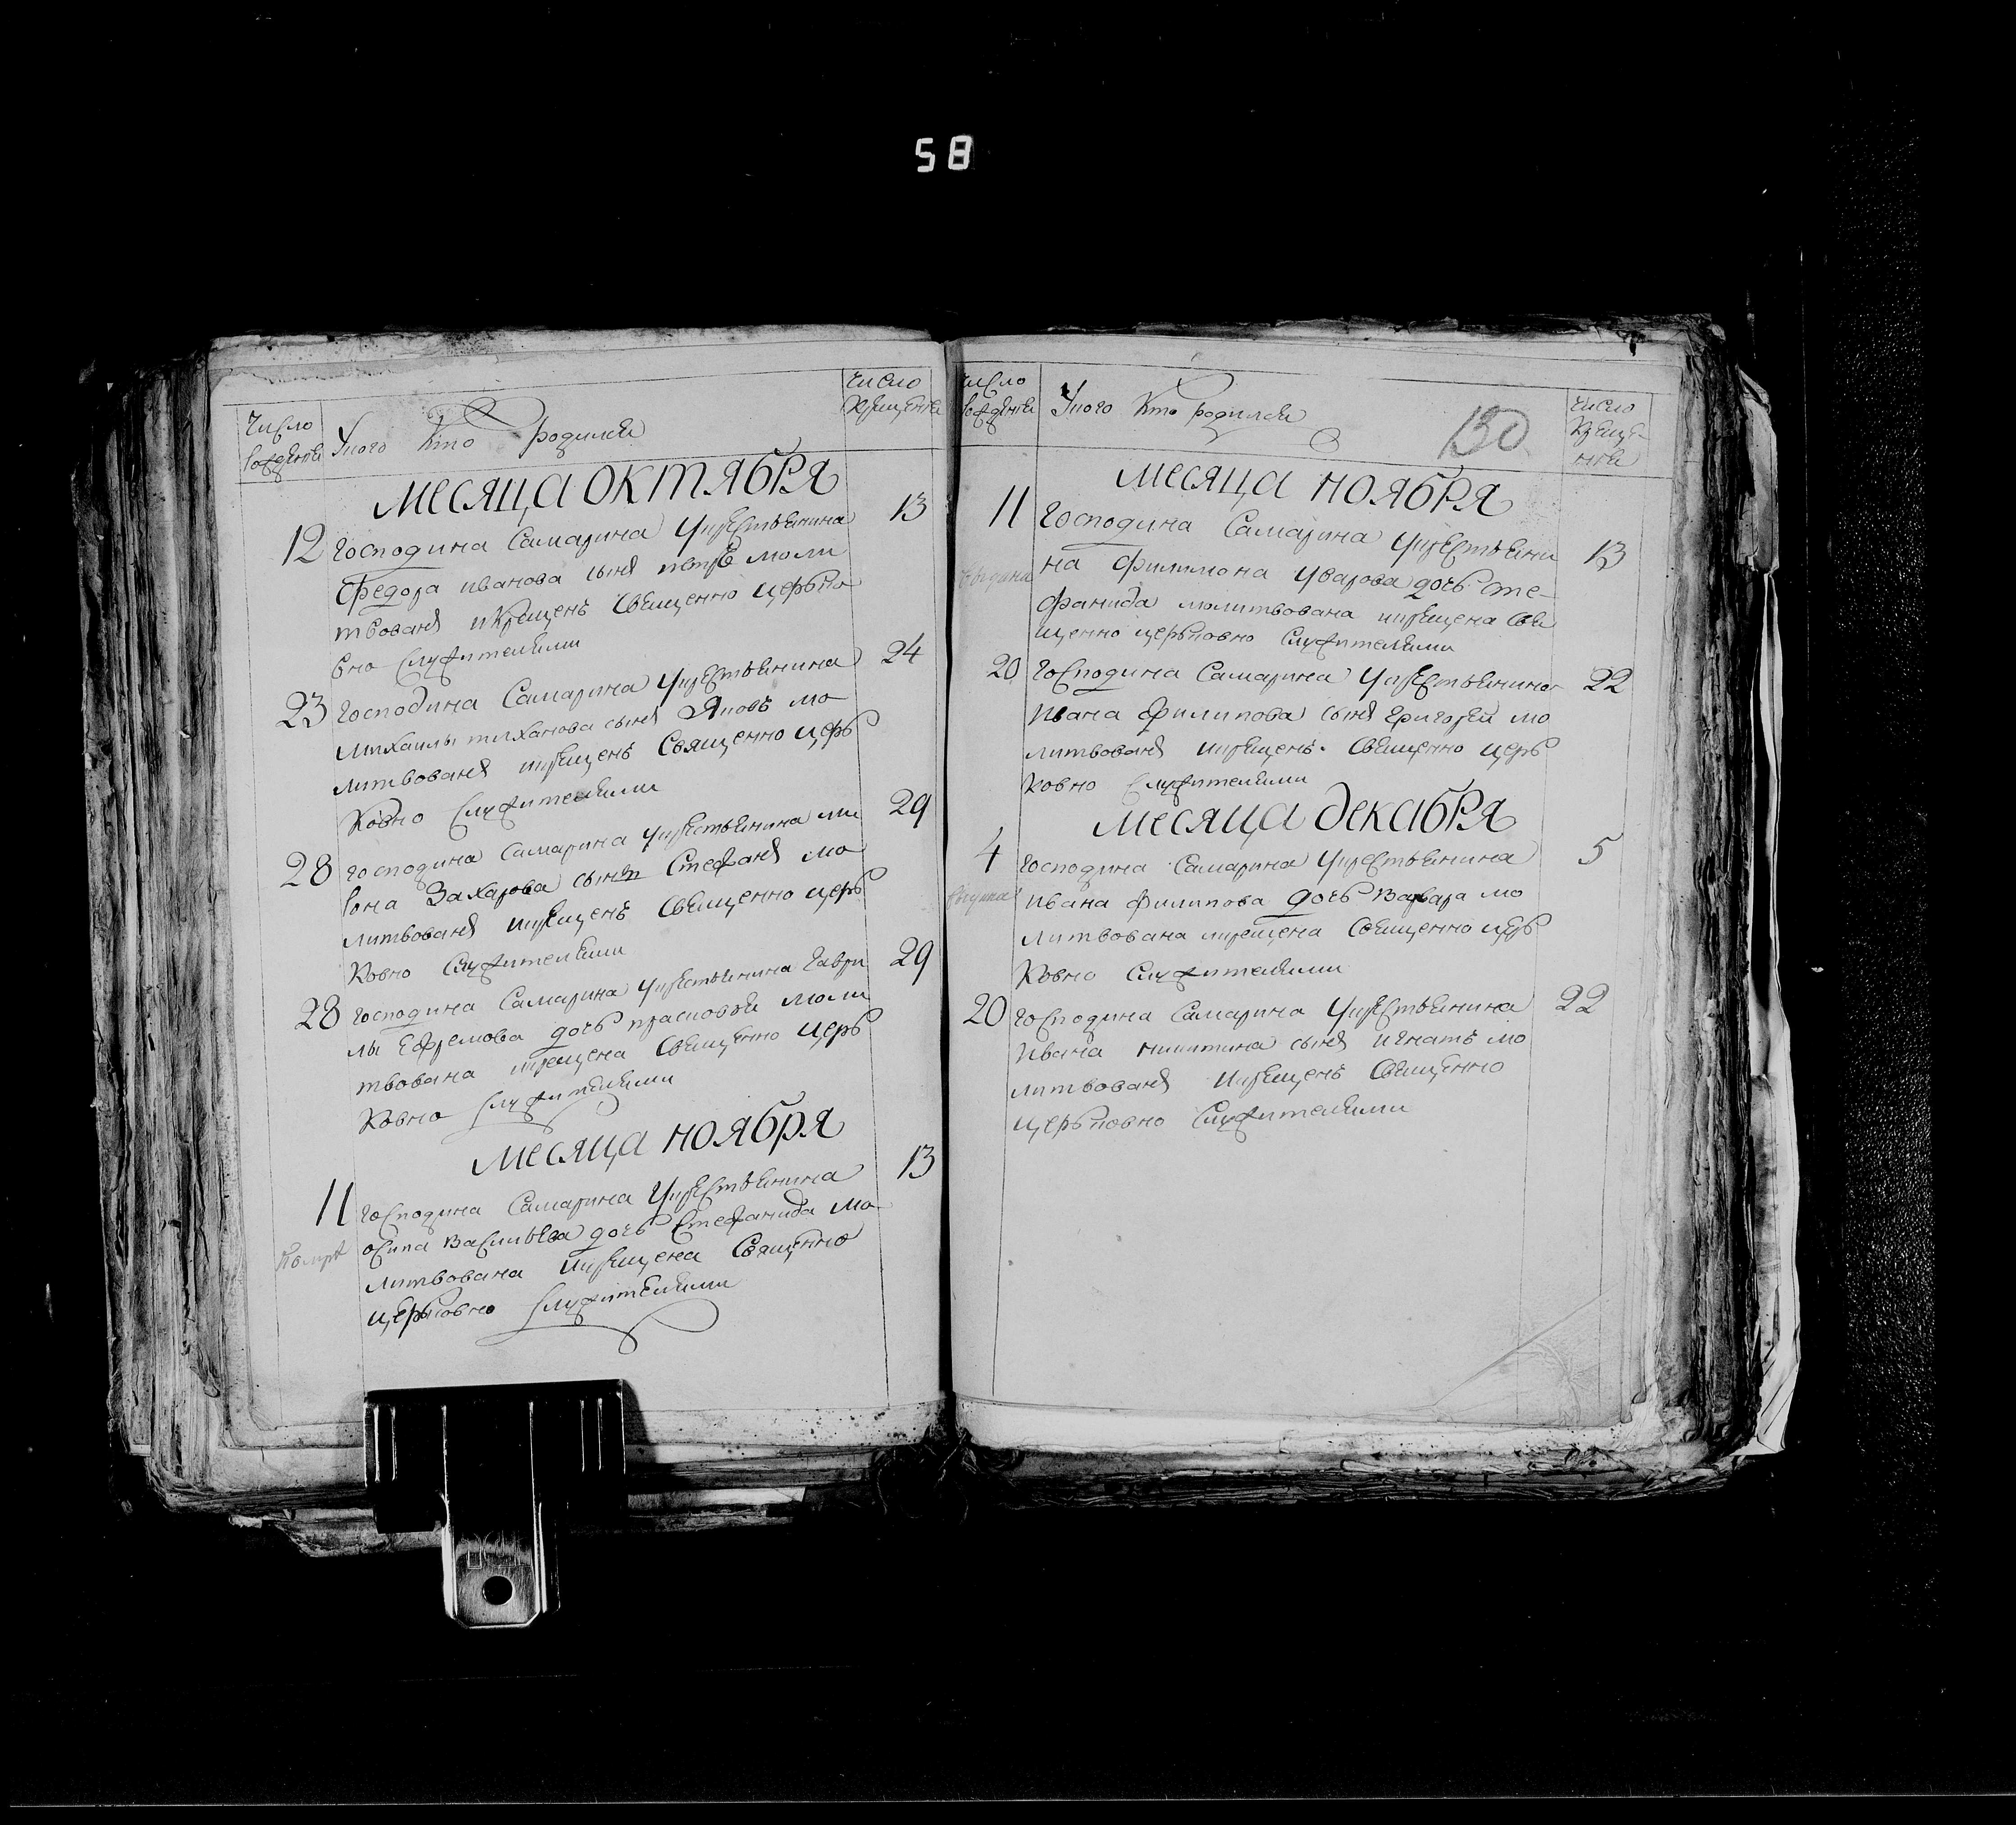 58
Число
рождения
У кого кто родился
Число
крещения
месяца октября
12 Господина Самарина укрестьянина 13
Федора иванова сынъ петръ моли
твованъ икрещенъ Священно церько
вно служителями
23 Господина Самарина укрестьянина 24
михаилы тиханова сынъ Яковъ мо
литвованъ икрещенъ Священно церь
ковно служителями
28 господина Самарина укрестьянина ми 29
рона Захарова сынъ Стефанъ мо
литвованъ икрещенъ Священно церь
ковно служителями
28 господина Самарина укрестьянина Гаври 29
лы Ефремова дочь прасковья моли
твована икрещена Священно церь
ковно служителями
месяца ноября
11 господина Самарина укрестьянина 13
осипа Васильева дочь Стефанида мо
литвована икрещена Священно
церьковно служителями
число
рождения
У кого кто родился
130
число
креще-
ния
месяца ноября
11 Господина Самарина укрестьяни 13
на филимона Уварова дочь сте-
фанида молитвована икрещена свя
щенно церьковно служителями
20 Господина Самарина укрестьянина 22
ивана филипова сынъ григорей мо
литвованъ икрещенъ Священно церь
ковно служителями
месяца декабря
4 Господина Самарина укрестьянина 5
ивана филипова дочь варвара мо
литвована икрещена Священно церь
ковно служителями
20 Господина Самарина укрестьянина 22
ивана никитина сынъ игнатъ мо
литвованъ икрещенъ Священно
церьковно служителями